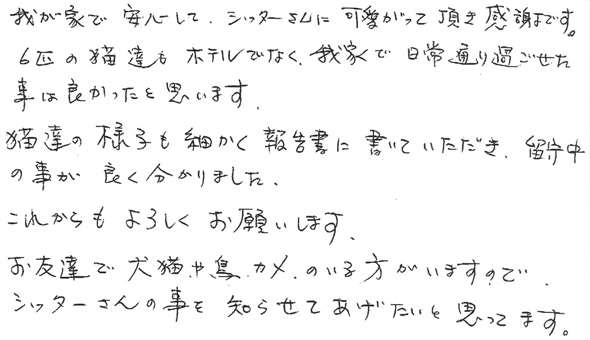 我が家で安心して、シッターさんに可愛がって頂き感謝です。
6匹の猫達もホテルでなく、我家で日常通り過ごせた
事は良かったと思います。
猫達の様子も細かく報告書に書いていただき、留守中
の事が良く分かりました。
これからもよろしくお願いします、
お友達で犬猫や鳥、カメ、のいる方がいますので、
シッターさんの事を知らせてあげたいと思ってます。